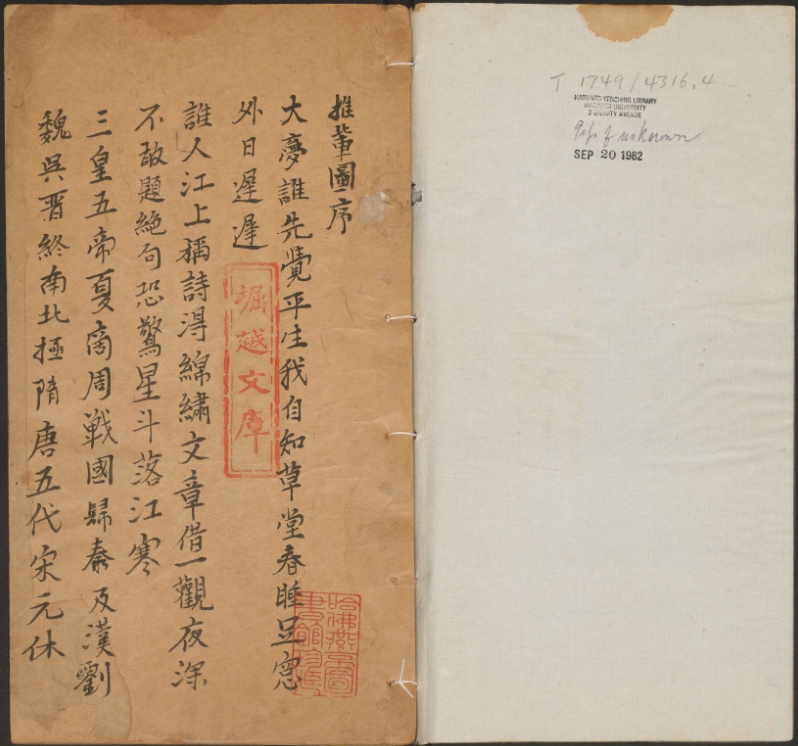 T 1749/4316.4
HARVARD-YENCHING LIBRARY
HARVARD UNIVERSITY
2 DIVINITY AVENUE
Gift of unknown
SEP 20 1982
推輩圖序
大夢誰先覺平生我自知草堂春睡足窓
外日遲遲
誰人江上稱詩淂綿繡文章借一觀夜深
不敢題絶句恐驚星斗落江寒
三皇五帝夏商周戰國歸秦及漢劉
魏吳晋終南北極隋唐五代宋元休
堀越文庫
哈佛燕京圖
書館